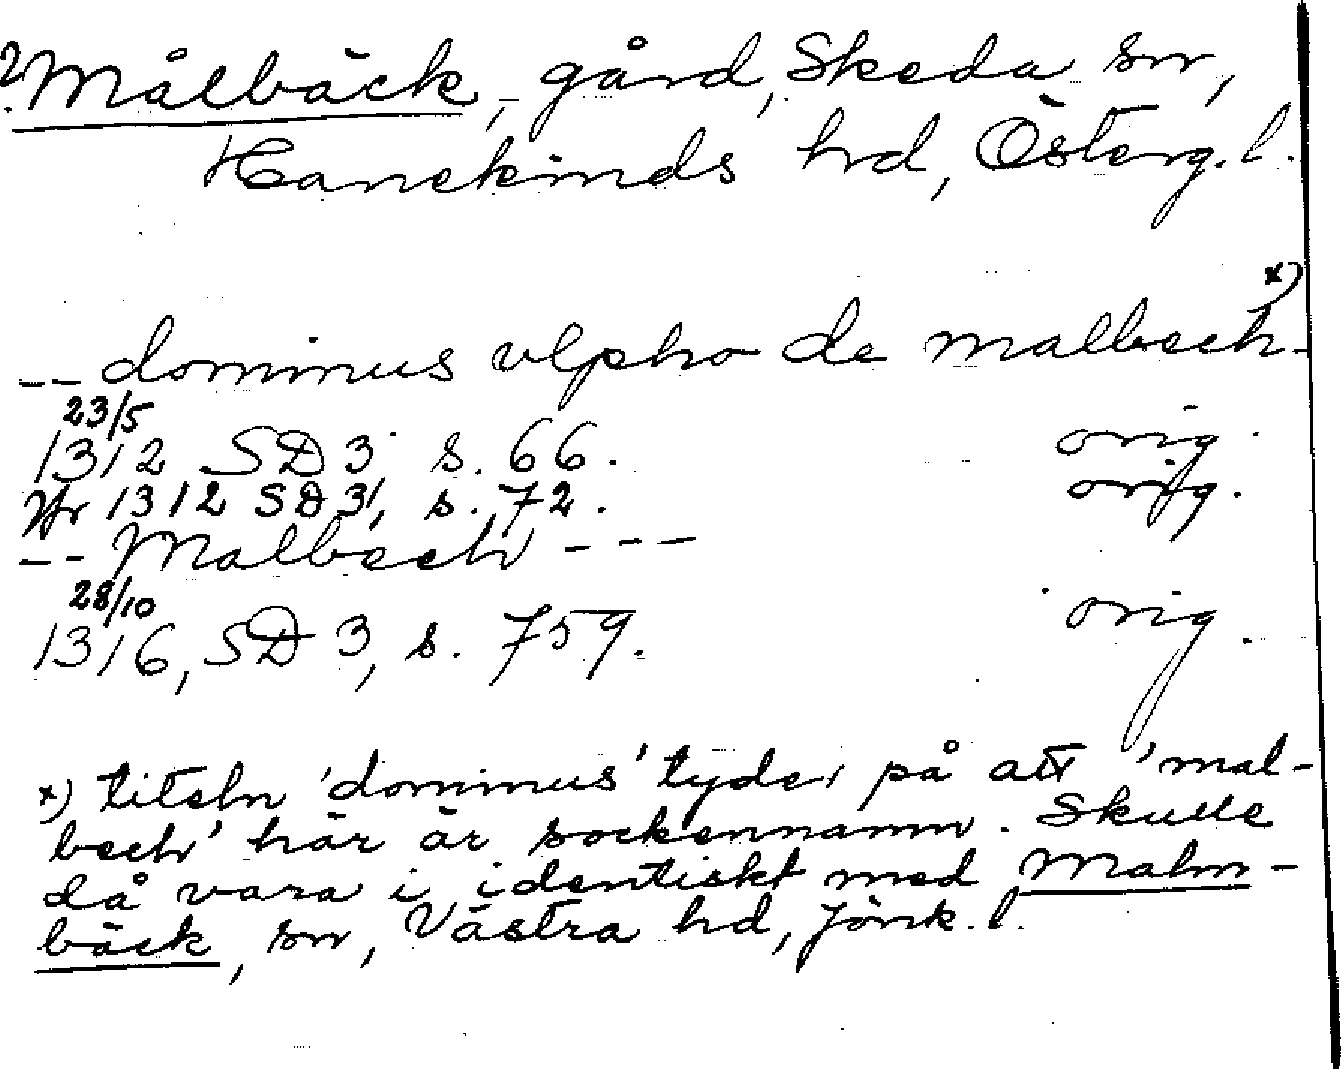 ? Målbäck, gård, Skeda sn,
Hanekinds hd, Österg. l.
-- dominus vlpho de malbech - x)
23/5
1312 SD 3 s. 66. orig.
1312 SD 3, s. 72. orig.
-- Malbech ---
28/10
1316, SD 3, s. 759. orig.
x) titeln 'dominus' tyder på att 'mal-
bech' här är sockennamn. Skulle
då vara i identiskt med Malm-
bäck, sn, Västra hd, Jönk. l.